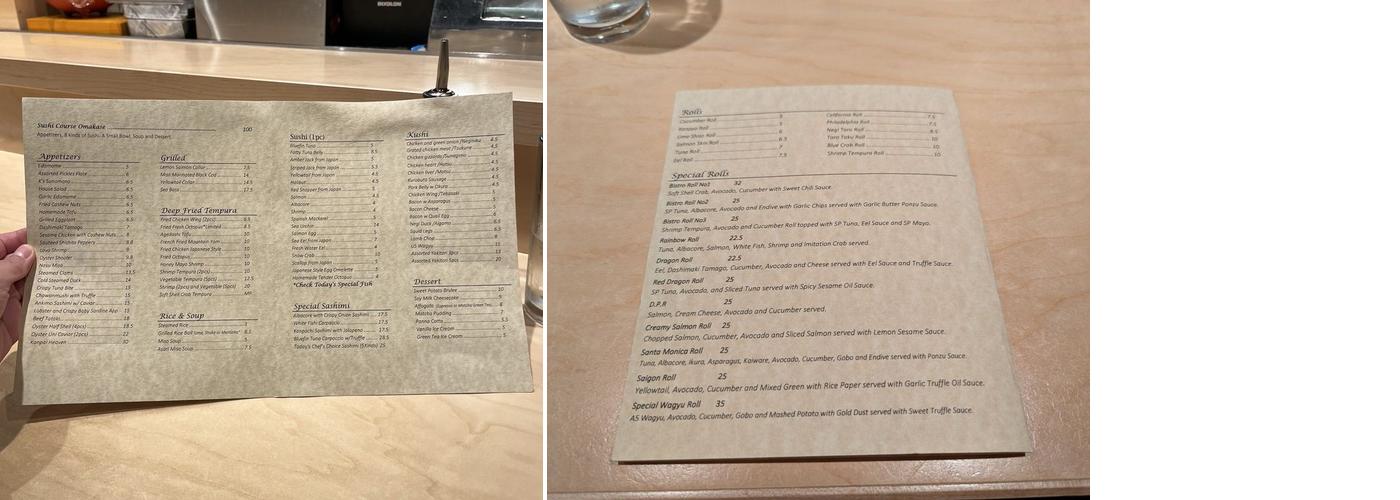 Sushi Course Omakase 100
Appetizers, 8 kinds of Sushi & Small Bowl, Soup and Dessert
Appetizers
Edamame 5
Assorted Pickles Plate 6
K's Sunomono 6.5
House Salad 6.5
Garlic Edamame 6.5
Fried Cashew Nuts 6.5
Homemade Tofu 6.5
Grilled Eggplant 6.5
Dashimaki Tamago 7
Sesame Chicken with Cashew Nuts 8
Sauteed Shishito Peppers 9.8
Love Shrimp 9
Oyster Shooter 9.8
Nasu Miso 10
Steamed Clams 13.5
Cold Steamed Duck 14
Crispy Tuna Bite 15
Chawanmushi with Truffle 15
Ankimo Sashimi w/ Caviar 15
Lobster and Crispy Baby Sardine App 15
Beef Tataki 18
Oyster Half Shell (4pcs) 18.5
Oyster Uni Caviar (2pcs) 22
Kanpai Heaven 30
Grilled
Lemon Salmon Collar 7.5
Miso Marinated Black Cod 14
Yellowtail Collar 14.5
Sea Bass 17.5
Deep Fried Tempura
Fried Chicken Wing (2pcs) 6.5
Fried Fresh Octopus*Limited 8.5
Agedashi Tofu 10
French Fried Mountain Yam 10
Fried Chicken Japanese Style 10
Fried Octopus 10
Honey Mayo Shrimp 10
Shrimp Tempura (2pcs) 10
Vegetable Tempura (5pcs) 12.5
Shrimp (2pcs) and Vegetable (5pcs) 20
Soft Shell Crab Tempura MP
Rice & Soup
Steamed Rice 3
Grilled Rice Ball (Ume, Shake or Mentaiko) 6.5
Miso Soup 5
Asari Miso Soup 7.5
Sushi (1pc)
Bluefin Tuna 5
Fatty Tuna Belly 8.5
Amber Jack from Japan 5
Striped Jack from Japan 5.5
Yellowtail from Japan 4.5
Halibut 4.5
Red Snapper from Japan 5
Salmon 4.5
Albacore 4
Shrimp 4
Spanish Mackerel 5
Sea Urchin 14
Salmon Egg 5
Sea Eel from Japan 7
Fresh Water Eel 4
Snow Crab 10
Scallop from Japan 5
Japanese Style Egg Omelette 5
Homemade Tender Octopus 4
*Check Today's Special Fish
Special Sashimi
Albacore with Crispy Onion Sashimi 17.5
White Fish Carpaccio 17.5
Kanpachi Sashimi with Jalapeno 17.5
Bluefin Tuna Carpaccio w/Truffle 28.5
Today's Chef's Choice Sashimi (5Kinds) 35
Kushi
Chicken and green onion /Negimaku 4.5
Grated chicken meat /Tsukune 4.5
Chicken gizzards /Sunagimo 4.5
Chicken heart /Hatsu 4.5
Chicken liver /Motsu 4.5
Kurobuta Sausage 4.5
Pork Belly w Okura 4.5
Chicken Wing /Tebasaki 5
Bacon w Asparagus 5
Bacon Cheese 5
Bacon w Quail Egg 6
Negi Duck /Aigamo 6.5
Squid Legs 6.5
Lamb Chop 8
US Wagyu 11
Assorted Yakitori 3pcs 13
Assorted Yakitori 5pcs 20
Dessert
Sweet Potato Brulee 10
Soy Milk Cheesecake 9
Matcha Pudding 7
Panna Cotta 5.5
Vanilla Ice Cream
Green Tea Ice Cream
Rolls
Cucumber Roll 5
Kanpyo Roll 5
Ume-Shiso Roll 6
Salmon Skin Roll 6.5
Tuna Roll 7
Eel Roll 7.5
California Roll 7.5
Philadelphia Roll 7.5
Negi Toro Roll 8.5
Toro Taku Roll 10
Blue Crab Roll 10
Shrimp Tempura Roll 10
Special Rolls
Bistro Roll No1 32
Soft Shell Crab, Avocado, Cucumber with Sweet Chili Sauce.
Bistro Roll No2 25
SP Tuna, Albacore, Avocado and Endive with Garlic Chips served with Garlic Butter Ponzu Sauce.
Bistro Roll No3 25
Shrimp Tempura, Avocado and Cucumber Roll topped with SP Tuna, Eel Sauce and SP Mayo.
Rainbow Roll 22.5
Tuna, Albacore, Salmon, White Fish, Shrimp and Imitation Crab served.
Dragon Roll 22.5
Eel, Dashimaki Tamago, Cucumber, Avocado and Cheese served with Eel Sauce and Truffle Sauce.
Red Dragon Roll 25
SP Tuna, Avocado, and Sliced Tuna served with Spicy Sesame Oil Sauce.
D.P.R 25
Salmon, Cream Cheese, Avocado and Cucumber served.
Creamy Salmon Roll 25
Chopped Salmon, Cucumber, Avocado and Sliced Salmon served with Lemon Sesame Sauce.
Santa Monica Roll 25
Tuna, Albacore, Ikura, Asparagus, Kaiware, Avocado, Cucumber, Gobo and Endive served with Ponzu Sauce.
Saigon Roll 25
Yellowtail, Avocado, Cucumber and Mixed Green with Rice Paper served with Garlic Truffle Oil Sauce.
Special Wagyu Roll 35
A5 Wagyu, Avocado, Cucumber, Gobo and Mashed Potato with Gold Dust served with Sweet Truffle Sauce.